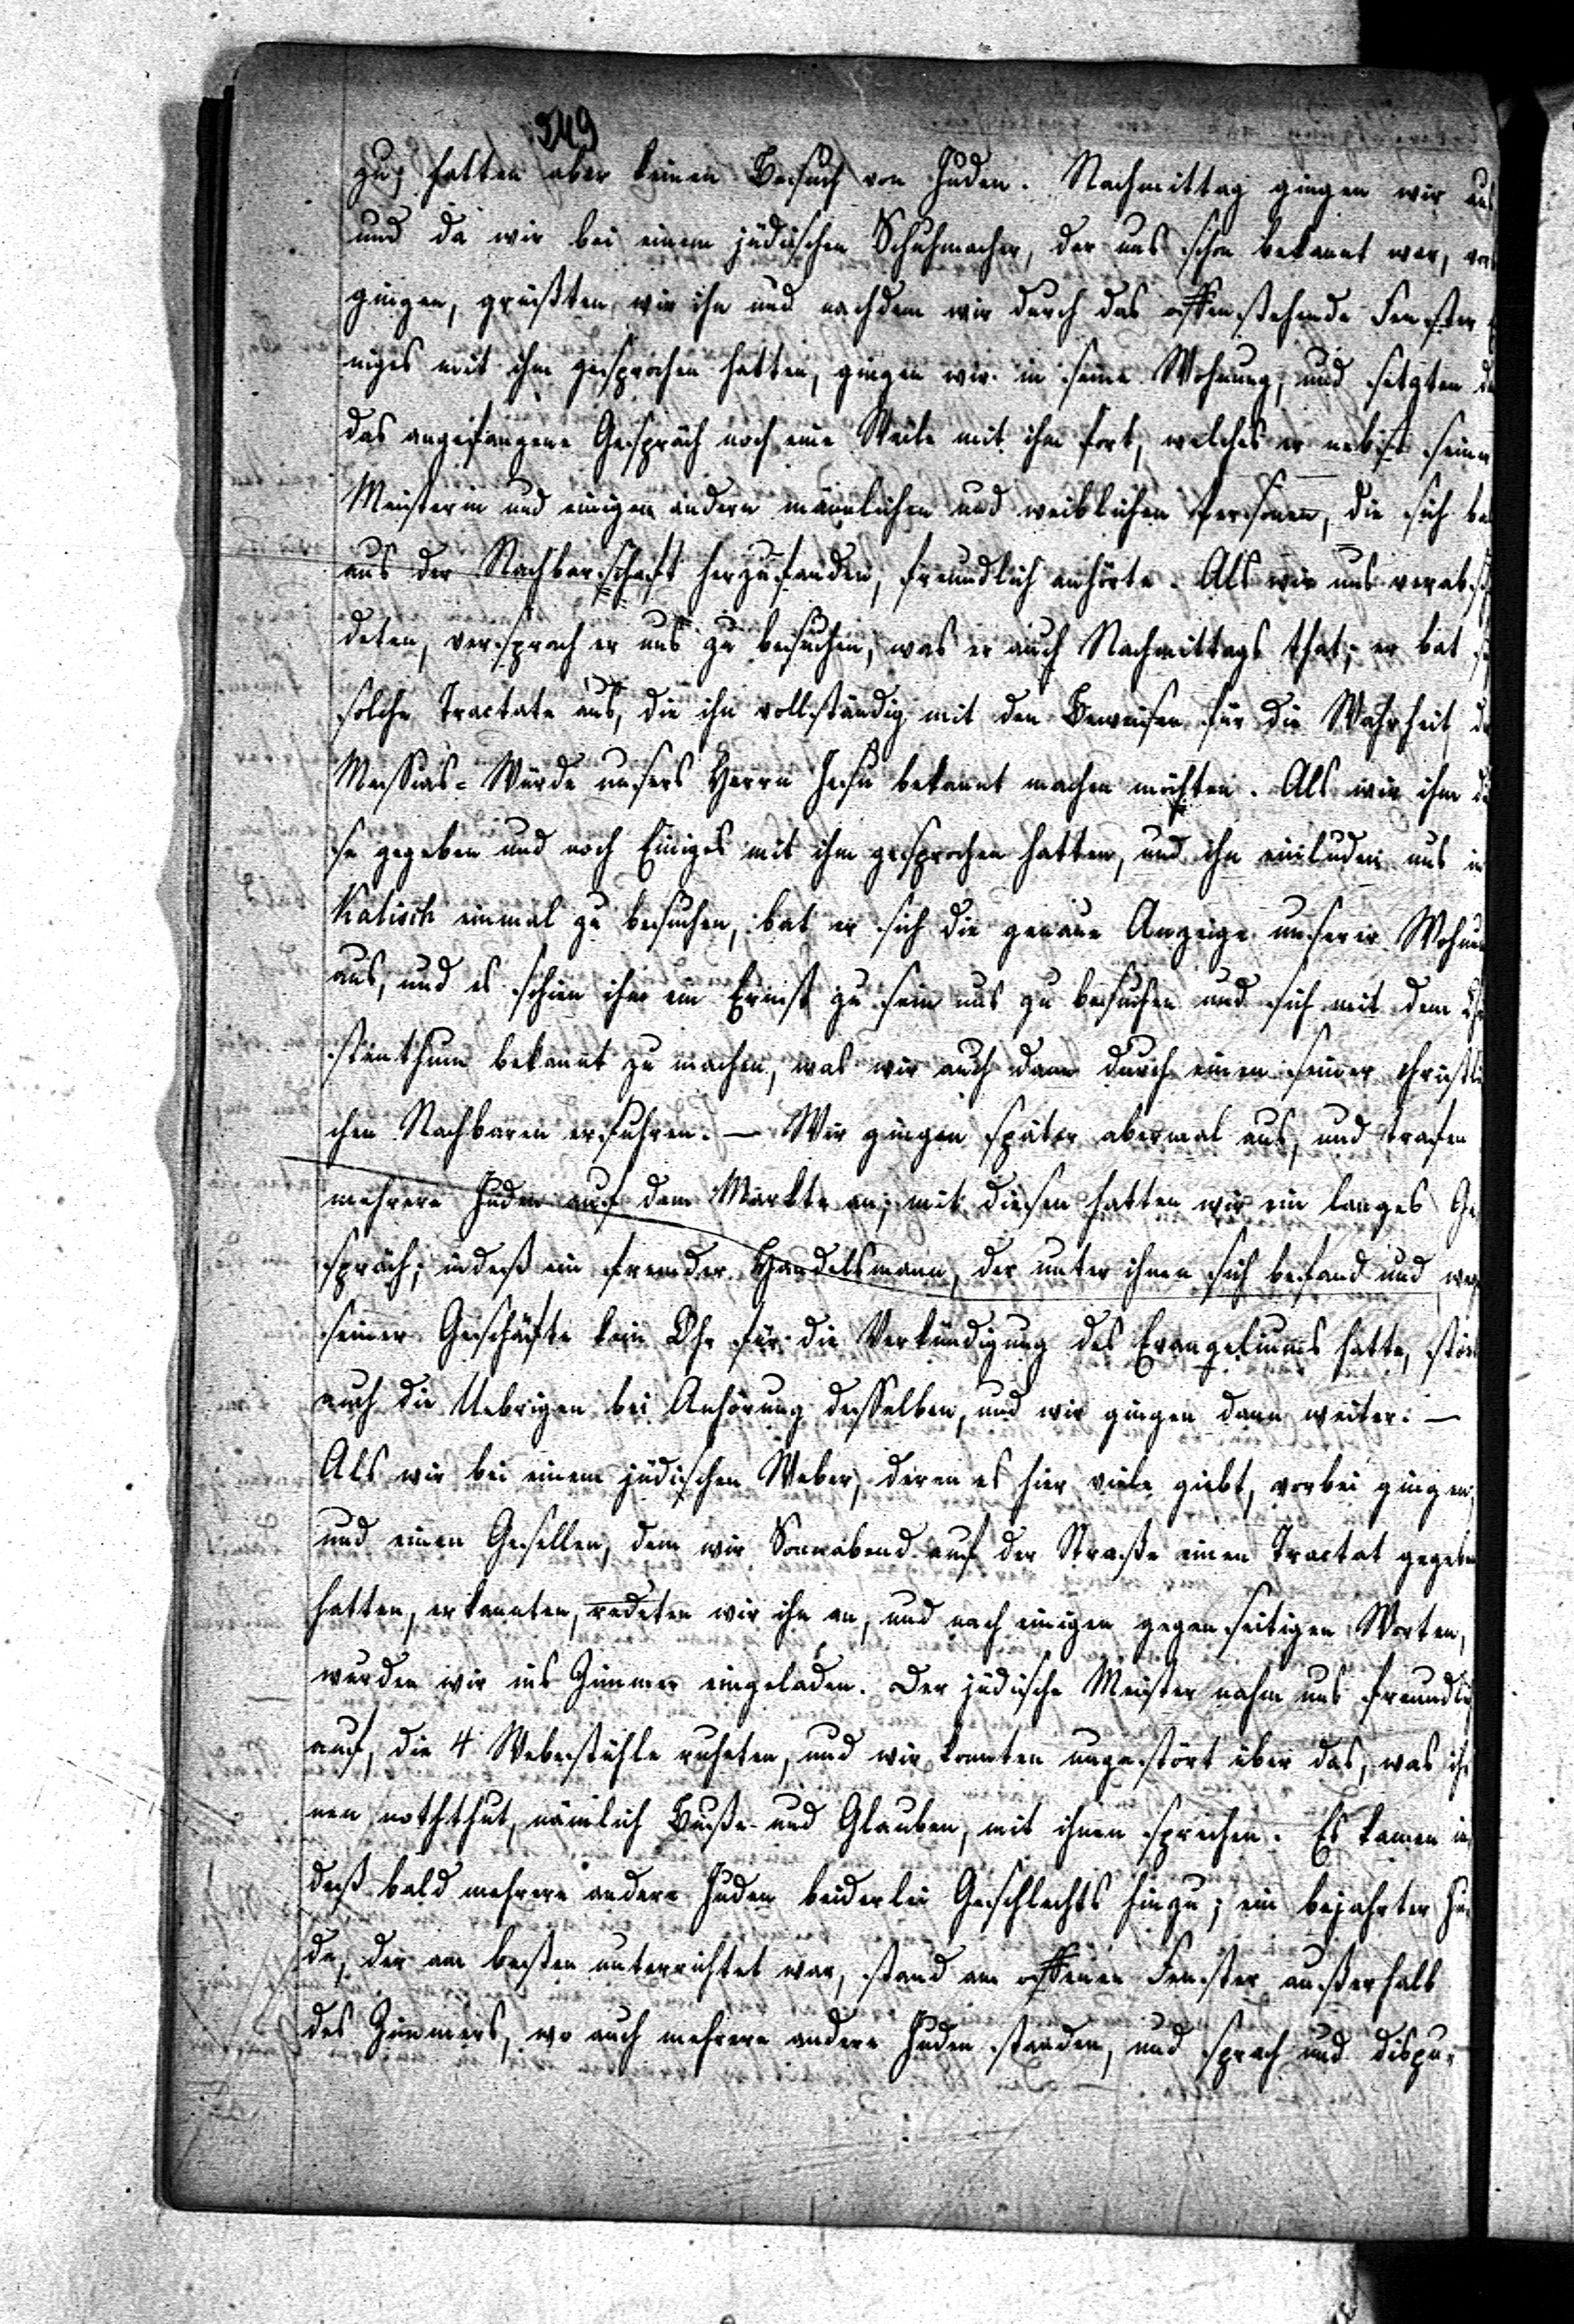 349
zu, hatten aber keinen Besuch von Juden. Nachmittag gingen wir aus
und da wir bei einem jüdischen Schuhmacher, der uns schon bekannt war, vor
gingen, grüßten wir ihn und nachdem wir durch das offenstehende Fenster
niges mit ihm gesprochen hatten, gingen wir in seine Wohnung, und setzten
das angefangene Gespräch noch eine Weile mit ihm fort, welches er nebst seiner
Meisterin und einigen andern männlichen und weiblichen Personen, die sich
aus der Nachbarschaft herzufanden, freundlich anhörte. Als wir uns verabsch
deten, versprach er uns zu besuchen, was er auch Nachmittags that; er bat
solche Tractate aus, die ihn vollständig mit den Beweisen für die Wahrheit
Messias-Würde unsers Herrn Jesu bekannt machen möchten. Als wir ihm
se gegeben und noch Einiges mit ihm gesprochen hatten, und ihn einluden uns in
Kalisch einmal zu besuchen, bat er sich die genaue Anzeige unserer Wohnu
aus, und es schien ihm ein Ernst zu sein uns zu besuchen und sich mit dem Ch
stenthum bekannt zu machen, was wir auch dann durch einen seiner christli
chen Nachbaren erfuhren. — Wir gingen später abermal aus, und trafen
mehrere Juden auf dem Markte an; mit diesen hatten wir ein langes Ge
spräch; indeß ein fremder Handelsmann, der unter ihnen sich befand und weg
seiner Geschäfte kein Ohr für die Verkündigung des Evangeliums hatte, stör
auch die Uebrigen bei Anhörung desselben, und wir gingen dann weiter. —
Als wir bei einem jüdischen Weber, deren es hier viele giebt, vorbei gingen,
und einen Gesellen, dem wir Sonnabend auf der Straße einen Tractat gegeben
hatten, erkannten, redeten wir ihn an, und nach einigen gegenseitigen Worten,
wurden wir ins Zimmer eingeladen. Der jüdische Meister nahm uns freundlich
auf, die 4 Webestühle ruheten, und wir konnten ungestört über das, was ih
nen noththut, nämlich Buße und Glauben, mit ihnen sprechen. Es kamen in
deß bald mehrere andere Juden beiderlei Geschlechts hinzu; ein bejahrter Ju
de, der am besten unterrichtet war, stand am offenen Fenster außerhalb
des Zimmers, wo auch mehrere andere Juden standen, und sprach und dispu-